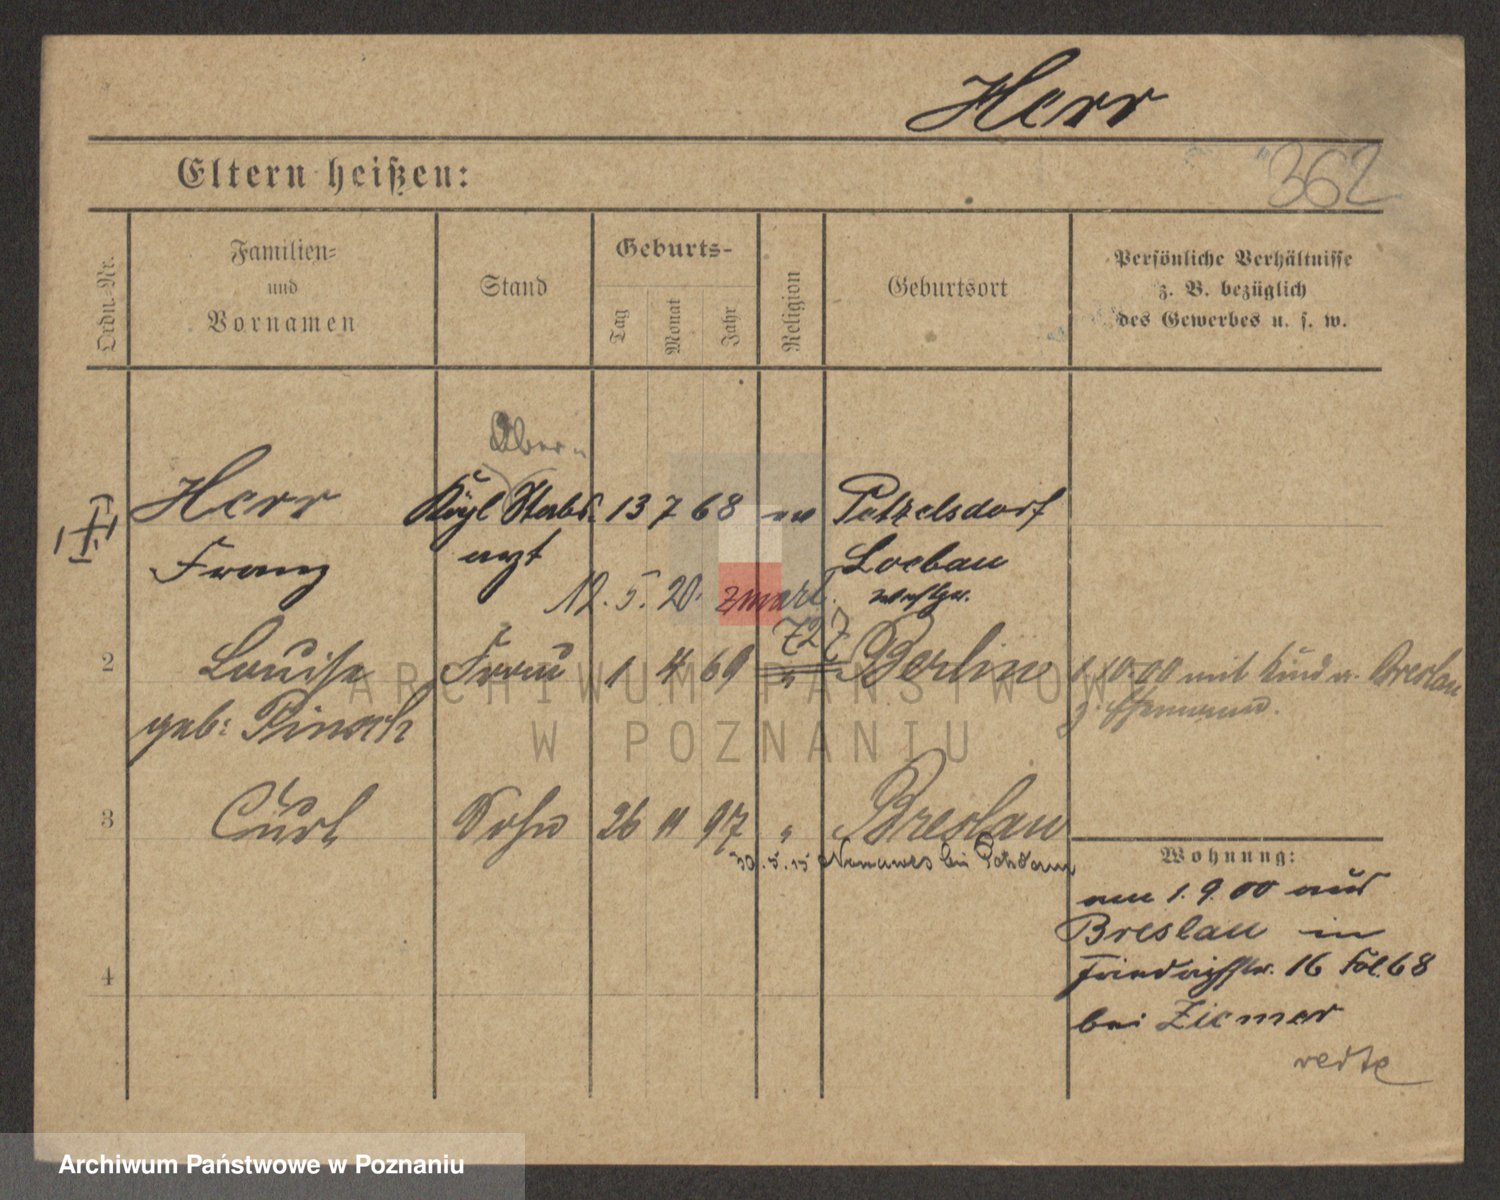 Herr
362
Eltern heißen:
Ordn.-Nr.
Familien-
und
Vornamen
Stand
Geburts-
Tag
Monat
Jahr
Religion
Geburtsort
Persönliche Verhältnisse
z. B. bezüglich
des Gewerbes u. s. w.
Ober-
Herr Kgl Stabs- 13 7 68 ev Petzelsdorf
Franz arzt Loebau
12. 5. 20. westpr.
727
2 Louise Frau 1 4 69 " Berlin 1.10.00 mit Kind n. Breslau
geb: Pinsch z. Ehemann.
3 Curt Sohn 26 11 97 " Breslau
30.5.15 Nowawes bei Potsdam
Wohnung:
am 1.9.00 aus
Breslau in
Friedrichstr. 16 Fol. 68
4
bei Ziemer
redte
ARCHIWUM PAŃSTWOWE
W POZNANIU
Archiwum Państwowe w Poznaniu